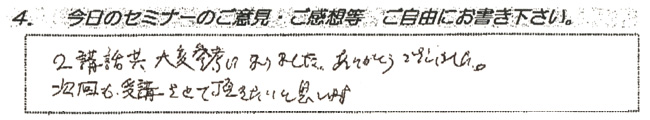 4. 今日のセミナーのご意見・ご感想等 ご自由にお書き下さい。
2講話共 大変参考になりました。ありがとうございました。
次回も受講させて頂きたいと思います